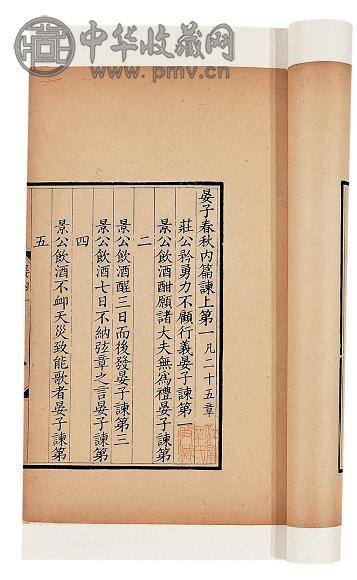 中华收藏网
www.pmv.cn
晏子春秋内篇諫上第一凡二十五章
莊公矜勇力不顧行義晏子諫第一
景公飲酒酣願諸大夫無為禮晏子諫第
二
景公飲酒酲三日而後發晏子諫第三
景公飲酒七日不納弦章之言晏子諫第
四
景公飲酒不卹天災致能歌者晏子諫第
五